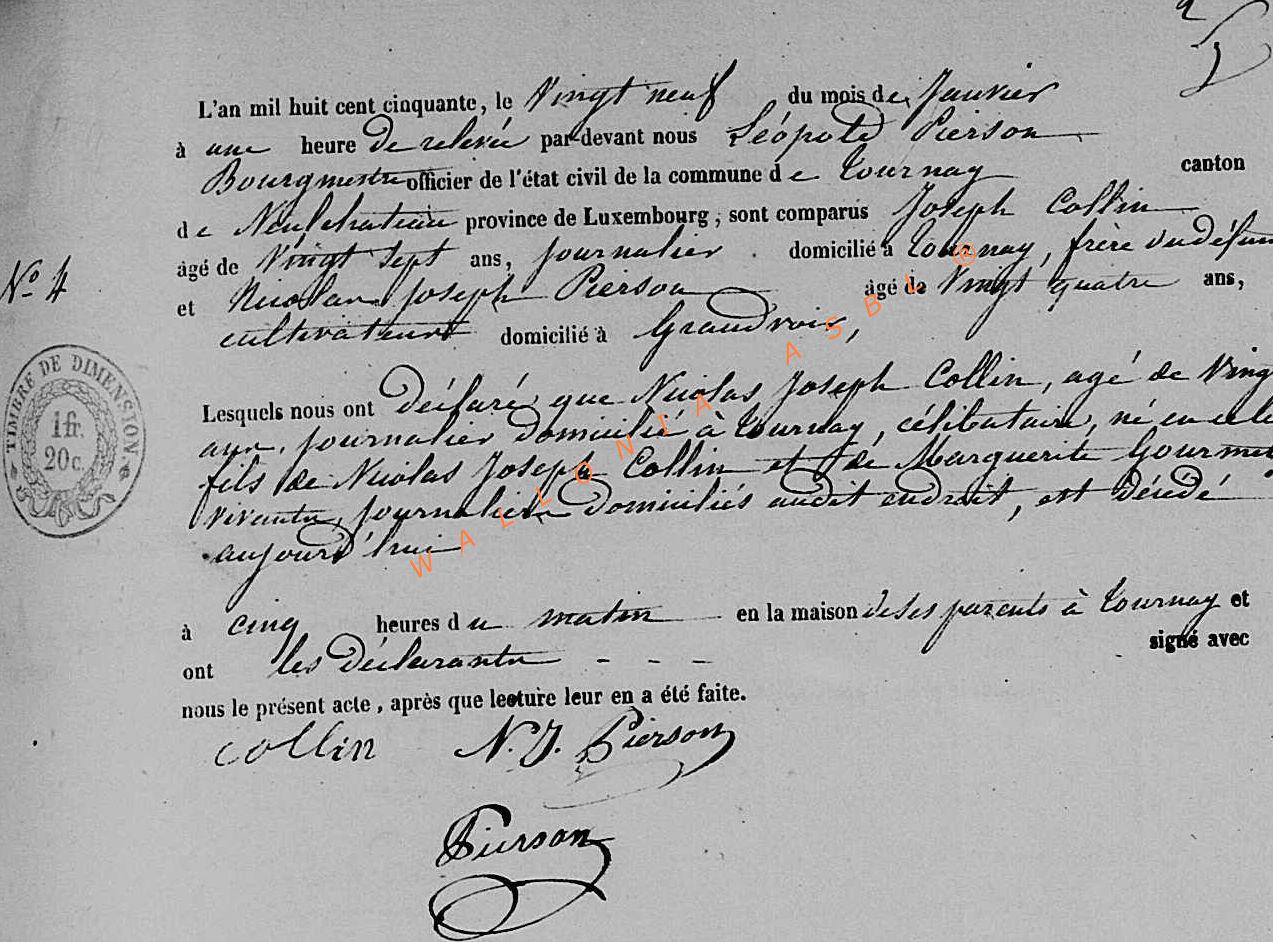 L'an mil huit cent cinquante, le Vingt neuf du mois de Janvier
à une heure De relevée par-devant nous Léopold Pierson
Bourgmestre officier de l'état civil de la commune de Tournay canton
de Neufchateau province de Luxembourg, sont comparus Joseph Collin
âgé de Vingt Sept ans, journalier domicilié à Tournay, frère du défun
et Nicolas Joseph Pierson âgé de Vingt quatre ans,
cultivateur domicilié à Grandvoir,
Nº 4
Lesquels nous ont Déclaré que Nicolas Joseph Collin, agé de Ving
ans, journalier domicilié à Tournay, célibataire, né en
fils de Nicolas Joseph Collin et de Marguerite Gourmet
vivants, journaliers domiciliés audit endroit, est décédé
aujourd'hui
à cinq heures du matin en la maison de ses parents à Tournay et
ont les Déclarants - - - signé avec
nous le présent acte, après que lecture leur en a été faite.
collin N. J. Pierson
Pierson
TIMBRE DE DIMENSION.
1 fr.
20 c.
WALLONIA ASBL ®